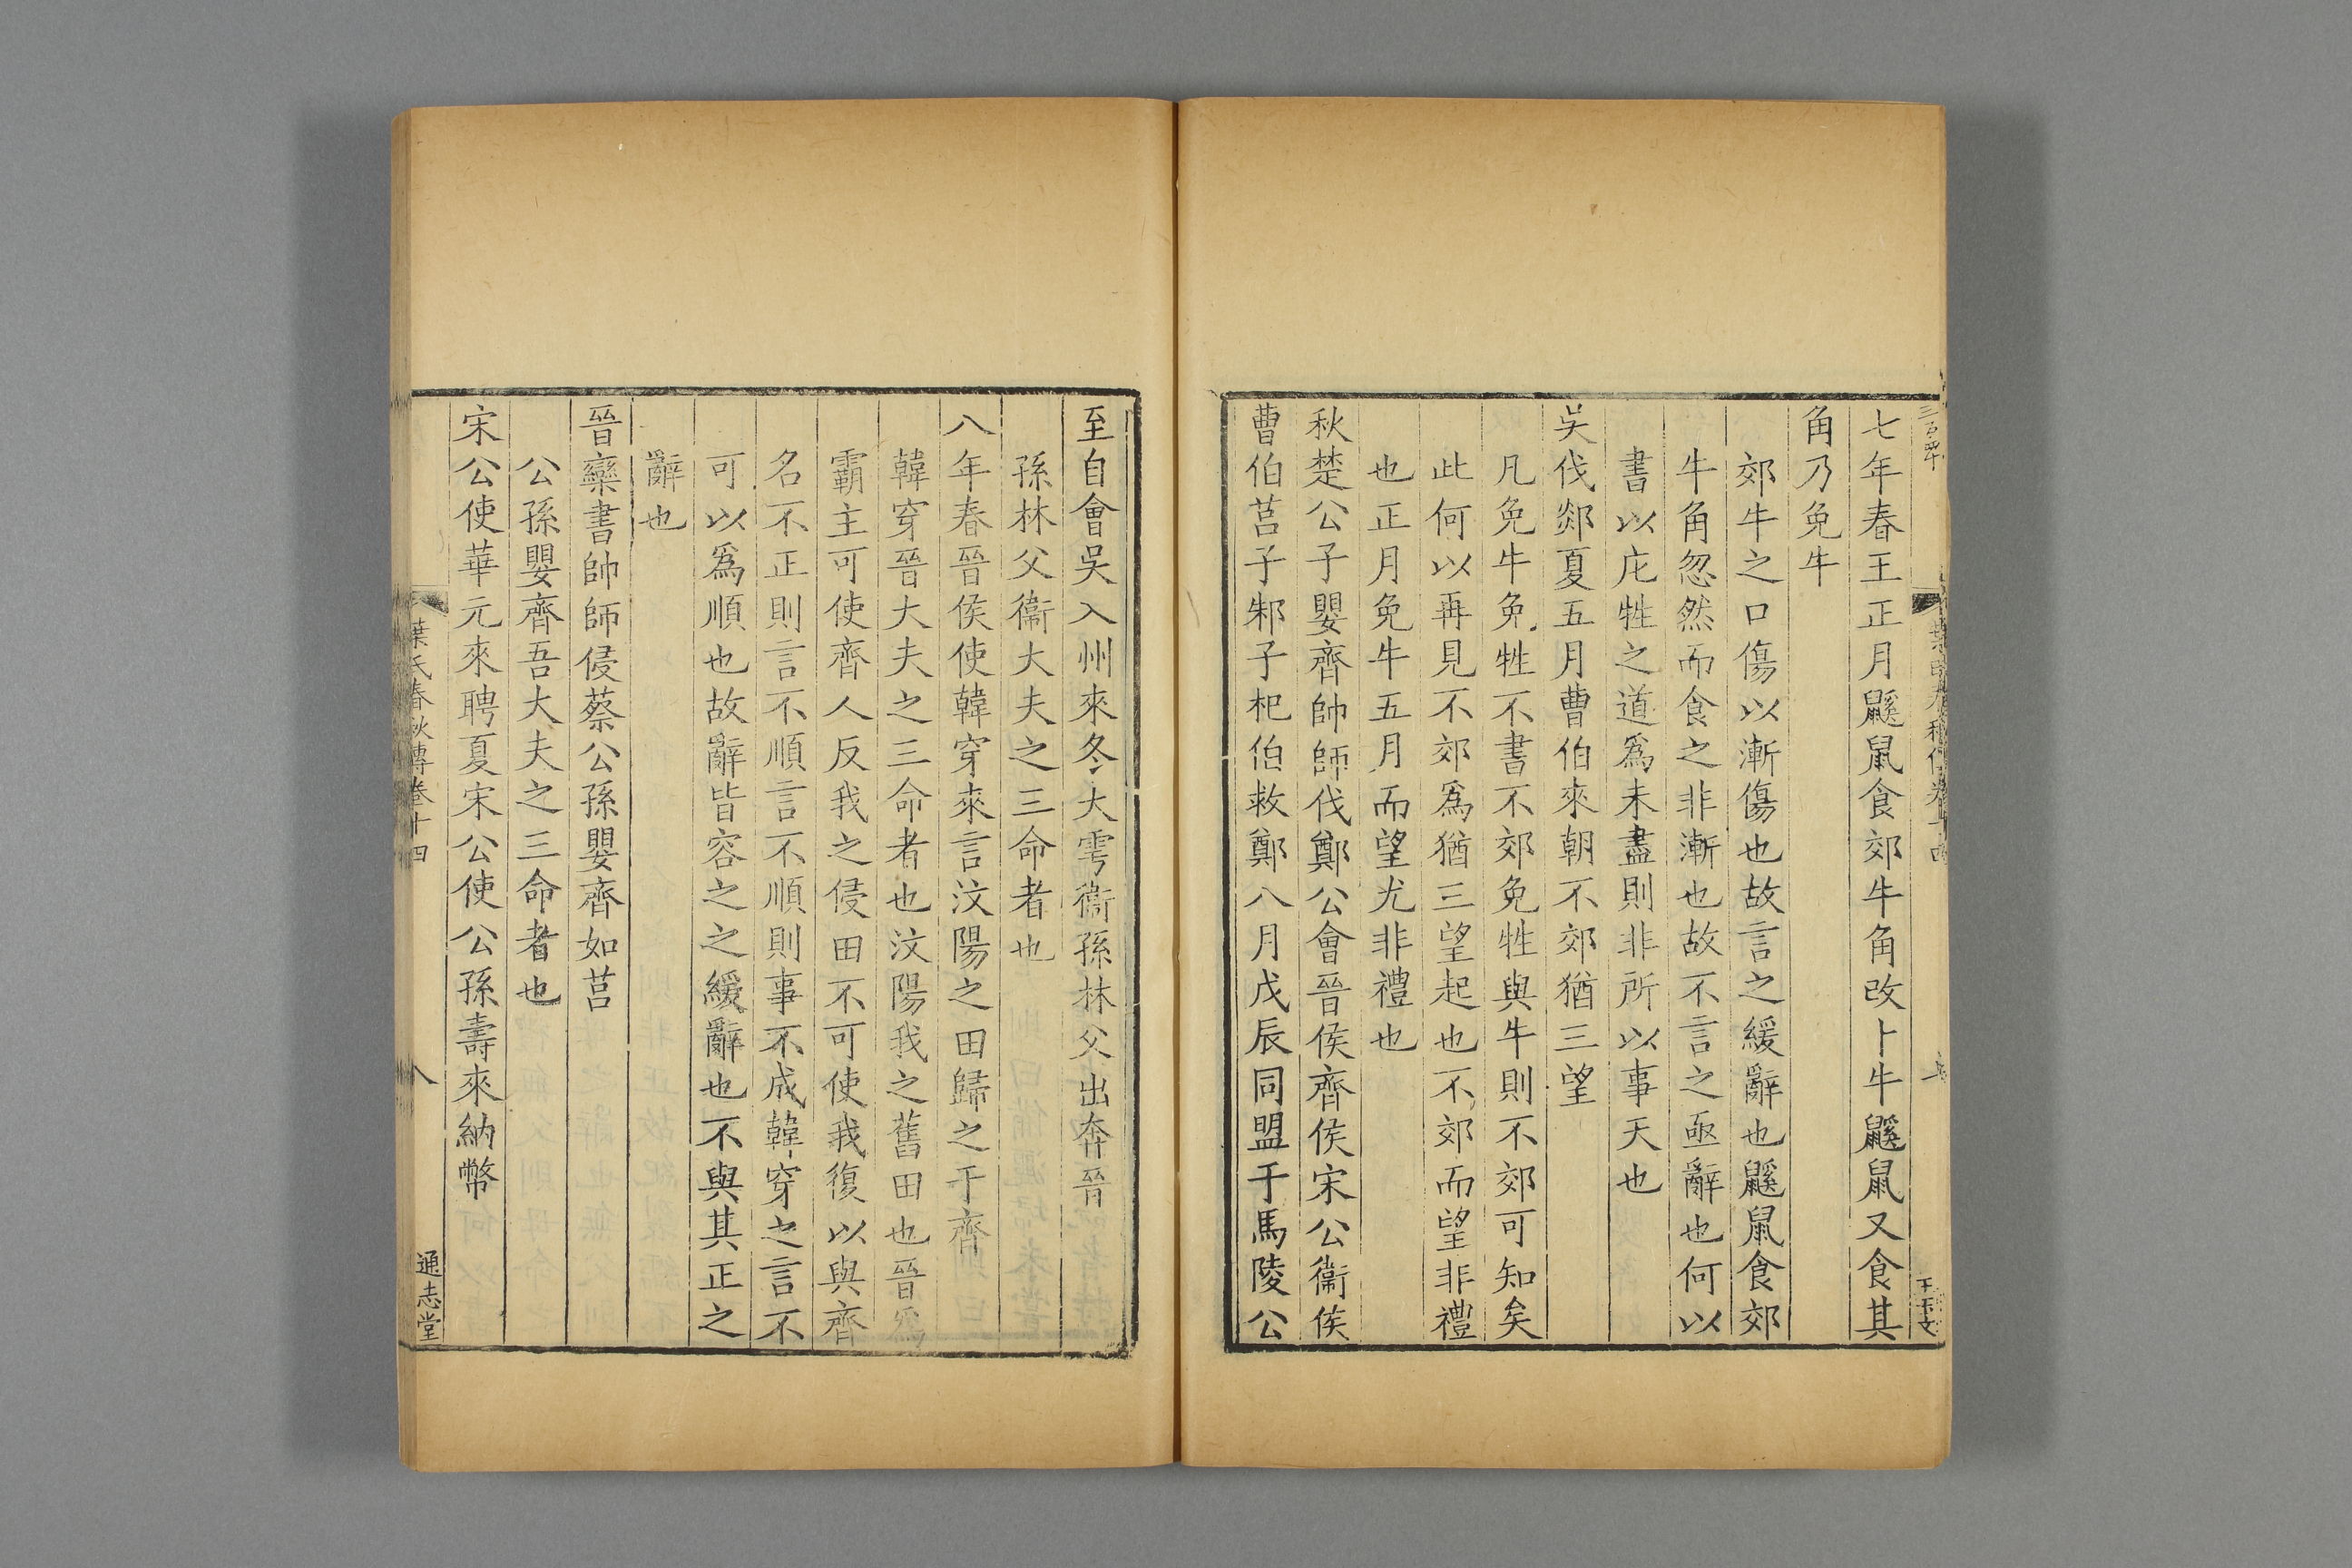 七年春王正月鼷鼠食郊牛角改卜牛鼷鼠又食其
角乃免牛
郊牛之口傷以漸傷也故言之緩辭也鼷鼠食郊
牛角忽然而食之非漸也故不言之亟辭也何以
書以庀牲之道爲未盡則非所以事天也
吳伐郯夏五月曹伯來朝不郊猶三望
凡免牛免牲不書不郊免牲與牛則不郊可知矣
此何以再見不郊爲猶三望起也不郊而望非禮
也正月免牛五月而望尤非禮也
秋楚公子嬰齊帥師伐鄭公會晉侯齊侯宋公衞侯
曹伯莒子邾子杞伯救鄭八月戊辰同盟于馬陵公
至自會吳入州來冬大雩衞孫林父出奔晉
孫林父衞大夫之三命者也
八年春晉侯使韓穿來言汶陽之田歸之于齊
韓穿晉大夫之三命者也汶陽我之舊田也晉爲
霸主可使齊人反我之侵田不可使我復以與齊
名不正則言不順言不順則事不成韓穿之言不
可以爲順也故辭皆容之之緩辭也不與其正之
辭也
晉欒書帥師侵蔡公孫嬰齊如莒
公孫嬰齊吾大夫之三命者也
宋公使華元來聘夏宋公使公孫壽來納幣
葉氏春秋傳卷十四
八
通志堂